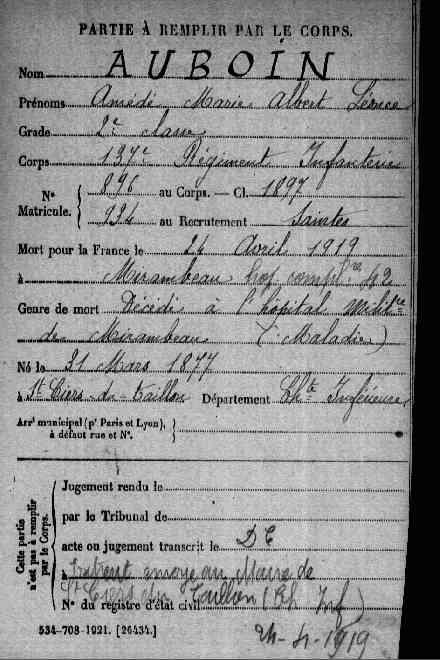 PARTIE À REMPLIR PAR LE CORPS.
Nom AUBOIN
Prénoms Amédé Marie Albert Léonce
Grade 2e classe
Corps 137e Régiment Infanterie
N° Matricule. { 896 au Corps. — Cl. 1897
934 au Recrutement Saintes
Mort pour la France le 24 Avril 1919
à Mirambeau hop. compl.re 62
Genre de mort Décédé à l'hôpital milit.re
de Mirambeau (Maladie)
Né le 31 Mars 1877
à St Ciers-du-Taillon Département Ch.te Inférieure
Arrt municipal (pr Paris et Lyon), à défaut rue et N°. }
Cette partie n'est pas à remplir par le Corps.
Jugement rendu le
par le Tribunal de
acte ou jugement transcrit le D C
à Extrait envoyé au Maire de
St Ciers du Taillon (Ch. Inf)
N° du registre d'état civil
24-4-1919
534-708-1921. [26434.]